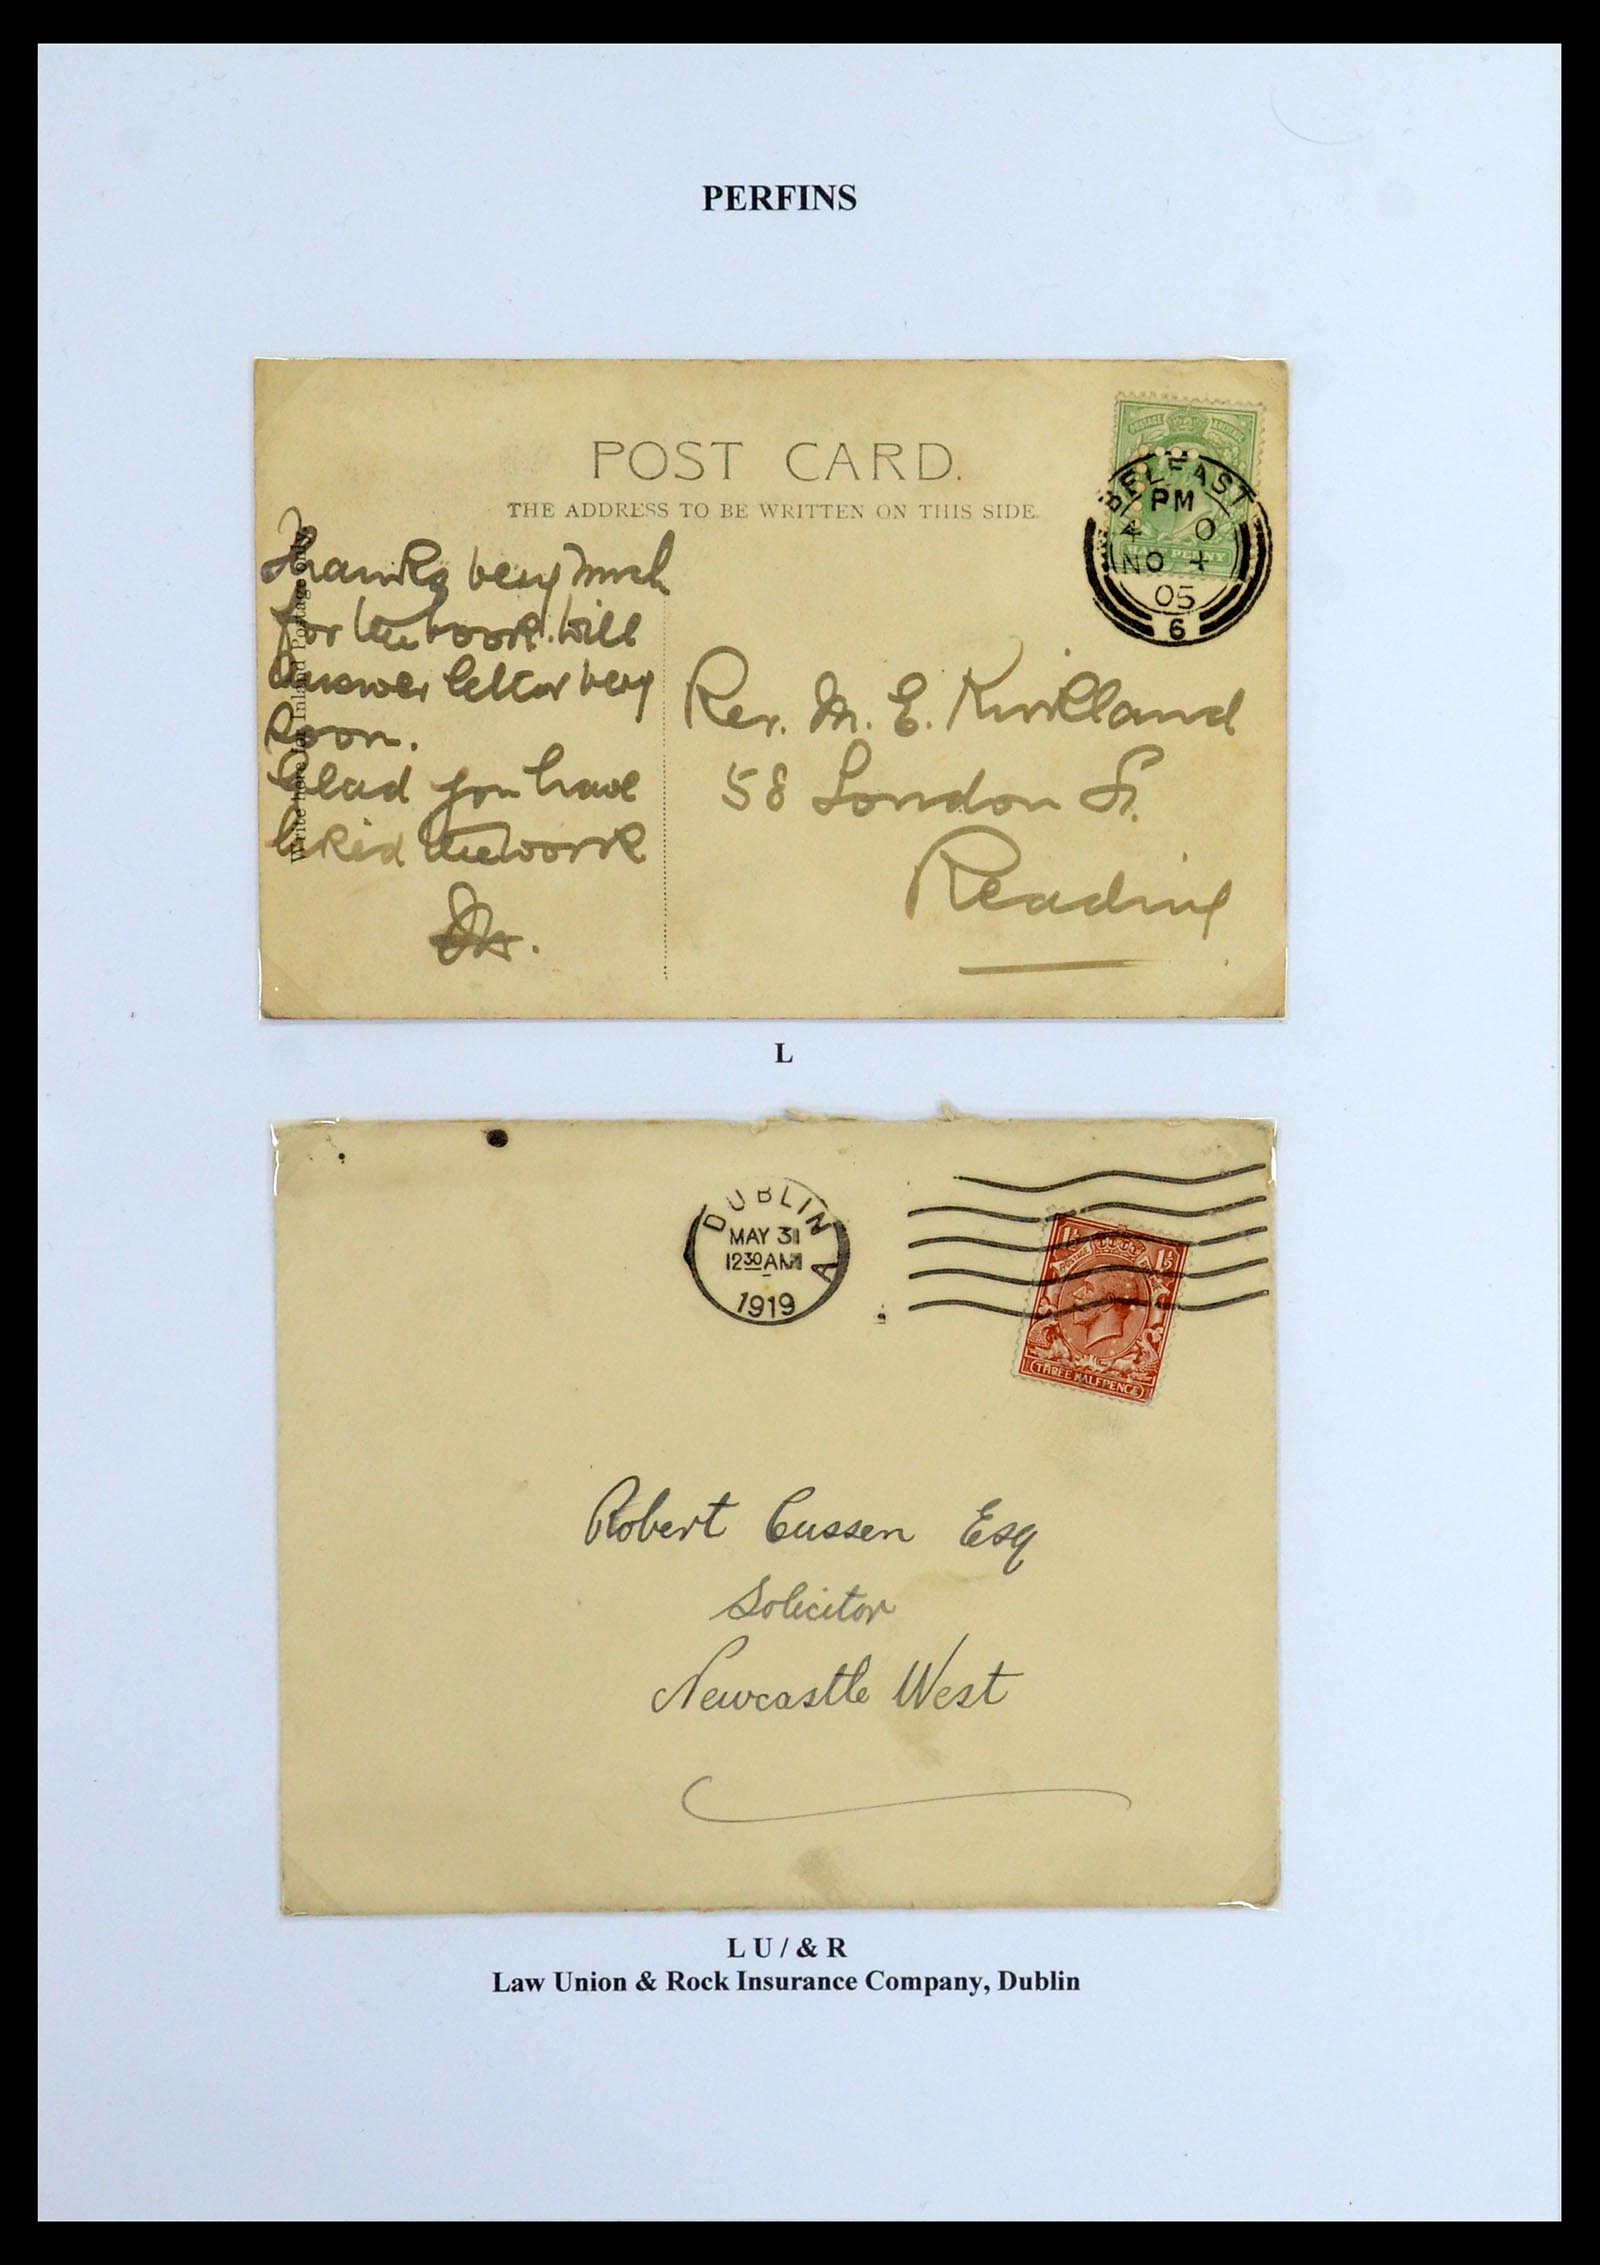 PERFINS
POST CARD.
THE ADDRESS TO BE WRITTEN ON THIS SIDE.
Write here for Inland Postage only
Thanks very much
for the book. Will
answer letter very
soon.
Glad you have
liked the work
POSTAGE
HALF PENNY
BELFAST
PM
4 0
NO 4
05
6
Rev. M. E. Kirkland
58 London St.
Reading
L
DUBLIN A
MAY 31
12 30 AM
1919
POSTAGE
THREE HALFPENCE
Robert Cussen Esq
Solicitor
Newcastle West
L U / & R
Law Union & Rock Insurance Company, Dublin